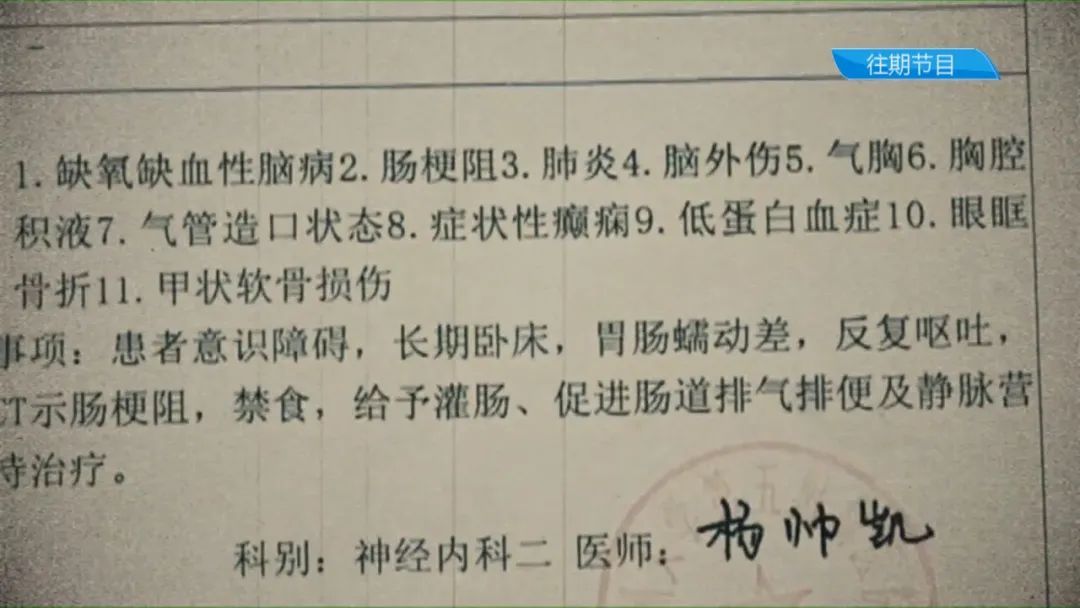 往期节目
1.缺氧缺血性脑病2.肠梗阻3.肺炎4.脑外伤5.气胸6.胸腔
积液7.气管造口状态8.症状性癫痫9.低蛋白血症10.眼眶
骨折11.甲状软骨损伤
事项：患者意识障碍，长期卧床，胃肠蠕动差，反复呕吐，
CT示肠梗阻，禁食，给予灌肠、促进肠道排气排便及静脉营
持治疗。
科别：神经内科二 医师：杨帅凯
五